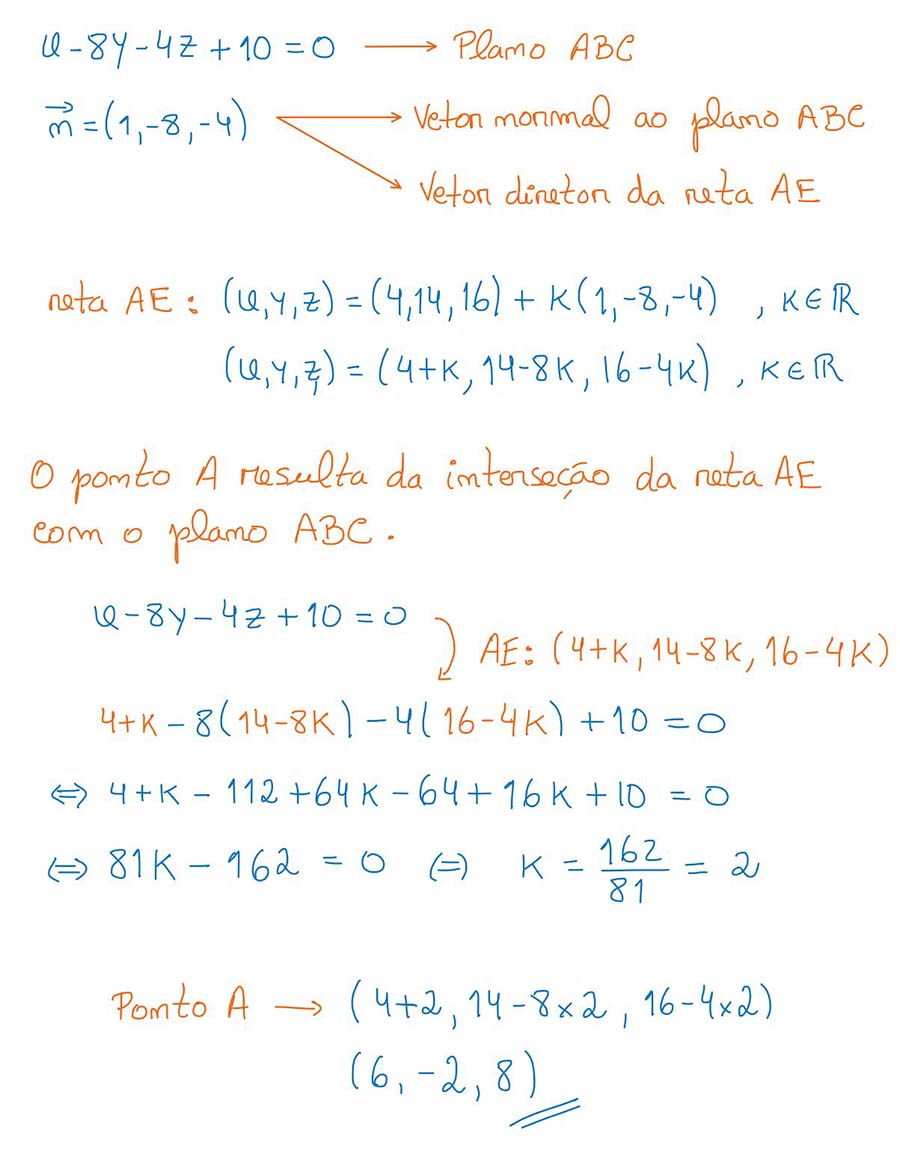 x - 8y - 4z + 10 = 0 ⟶ Plano ABC
n⃗ = (1, -8, -4) ⟶ Vetor normal ao plano ABC
⟶ Vetor diretor da reta AE
reta AE : (x, y, z) = (4, 14, 16) + K(1, -8, -4) , K ∈ ℝ
(x, y, z) = (4+K, 14-8K, 16-4K) , K ∈ ℝ
O ponto A resulta da interseção da reta AE
com o plano ABC.
x - 8y - 4z + 10 = 0
AE: (4+K, 14-8K, 16-4K)
4+K - 8(14-8K) - 4(16-4K) + 10 = 0
⇔ 4+K - 112 + 64K - 64 + 16K + 10 = 0
⇔ 81K - 162 = 0 ⇔ K = 162/81 = 2
Ponto A ⟶ (4+2, 14-8×2, 16-4×2)
(6, -2, 8)